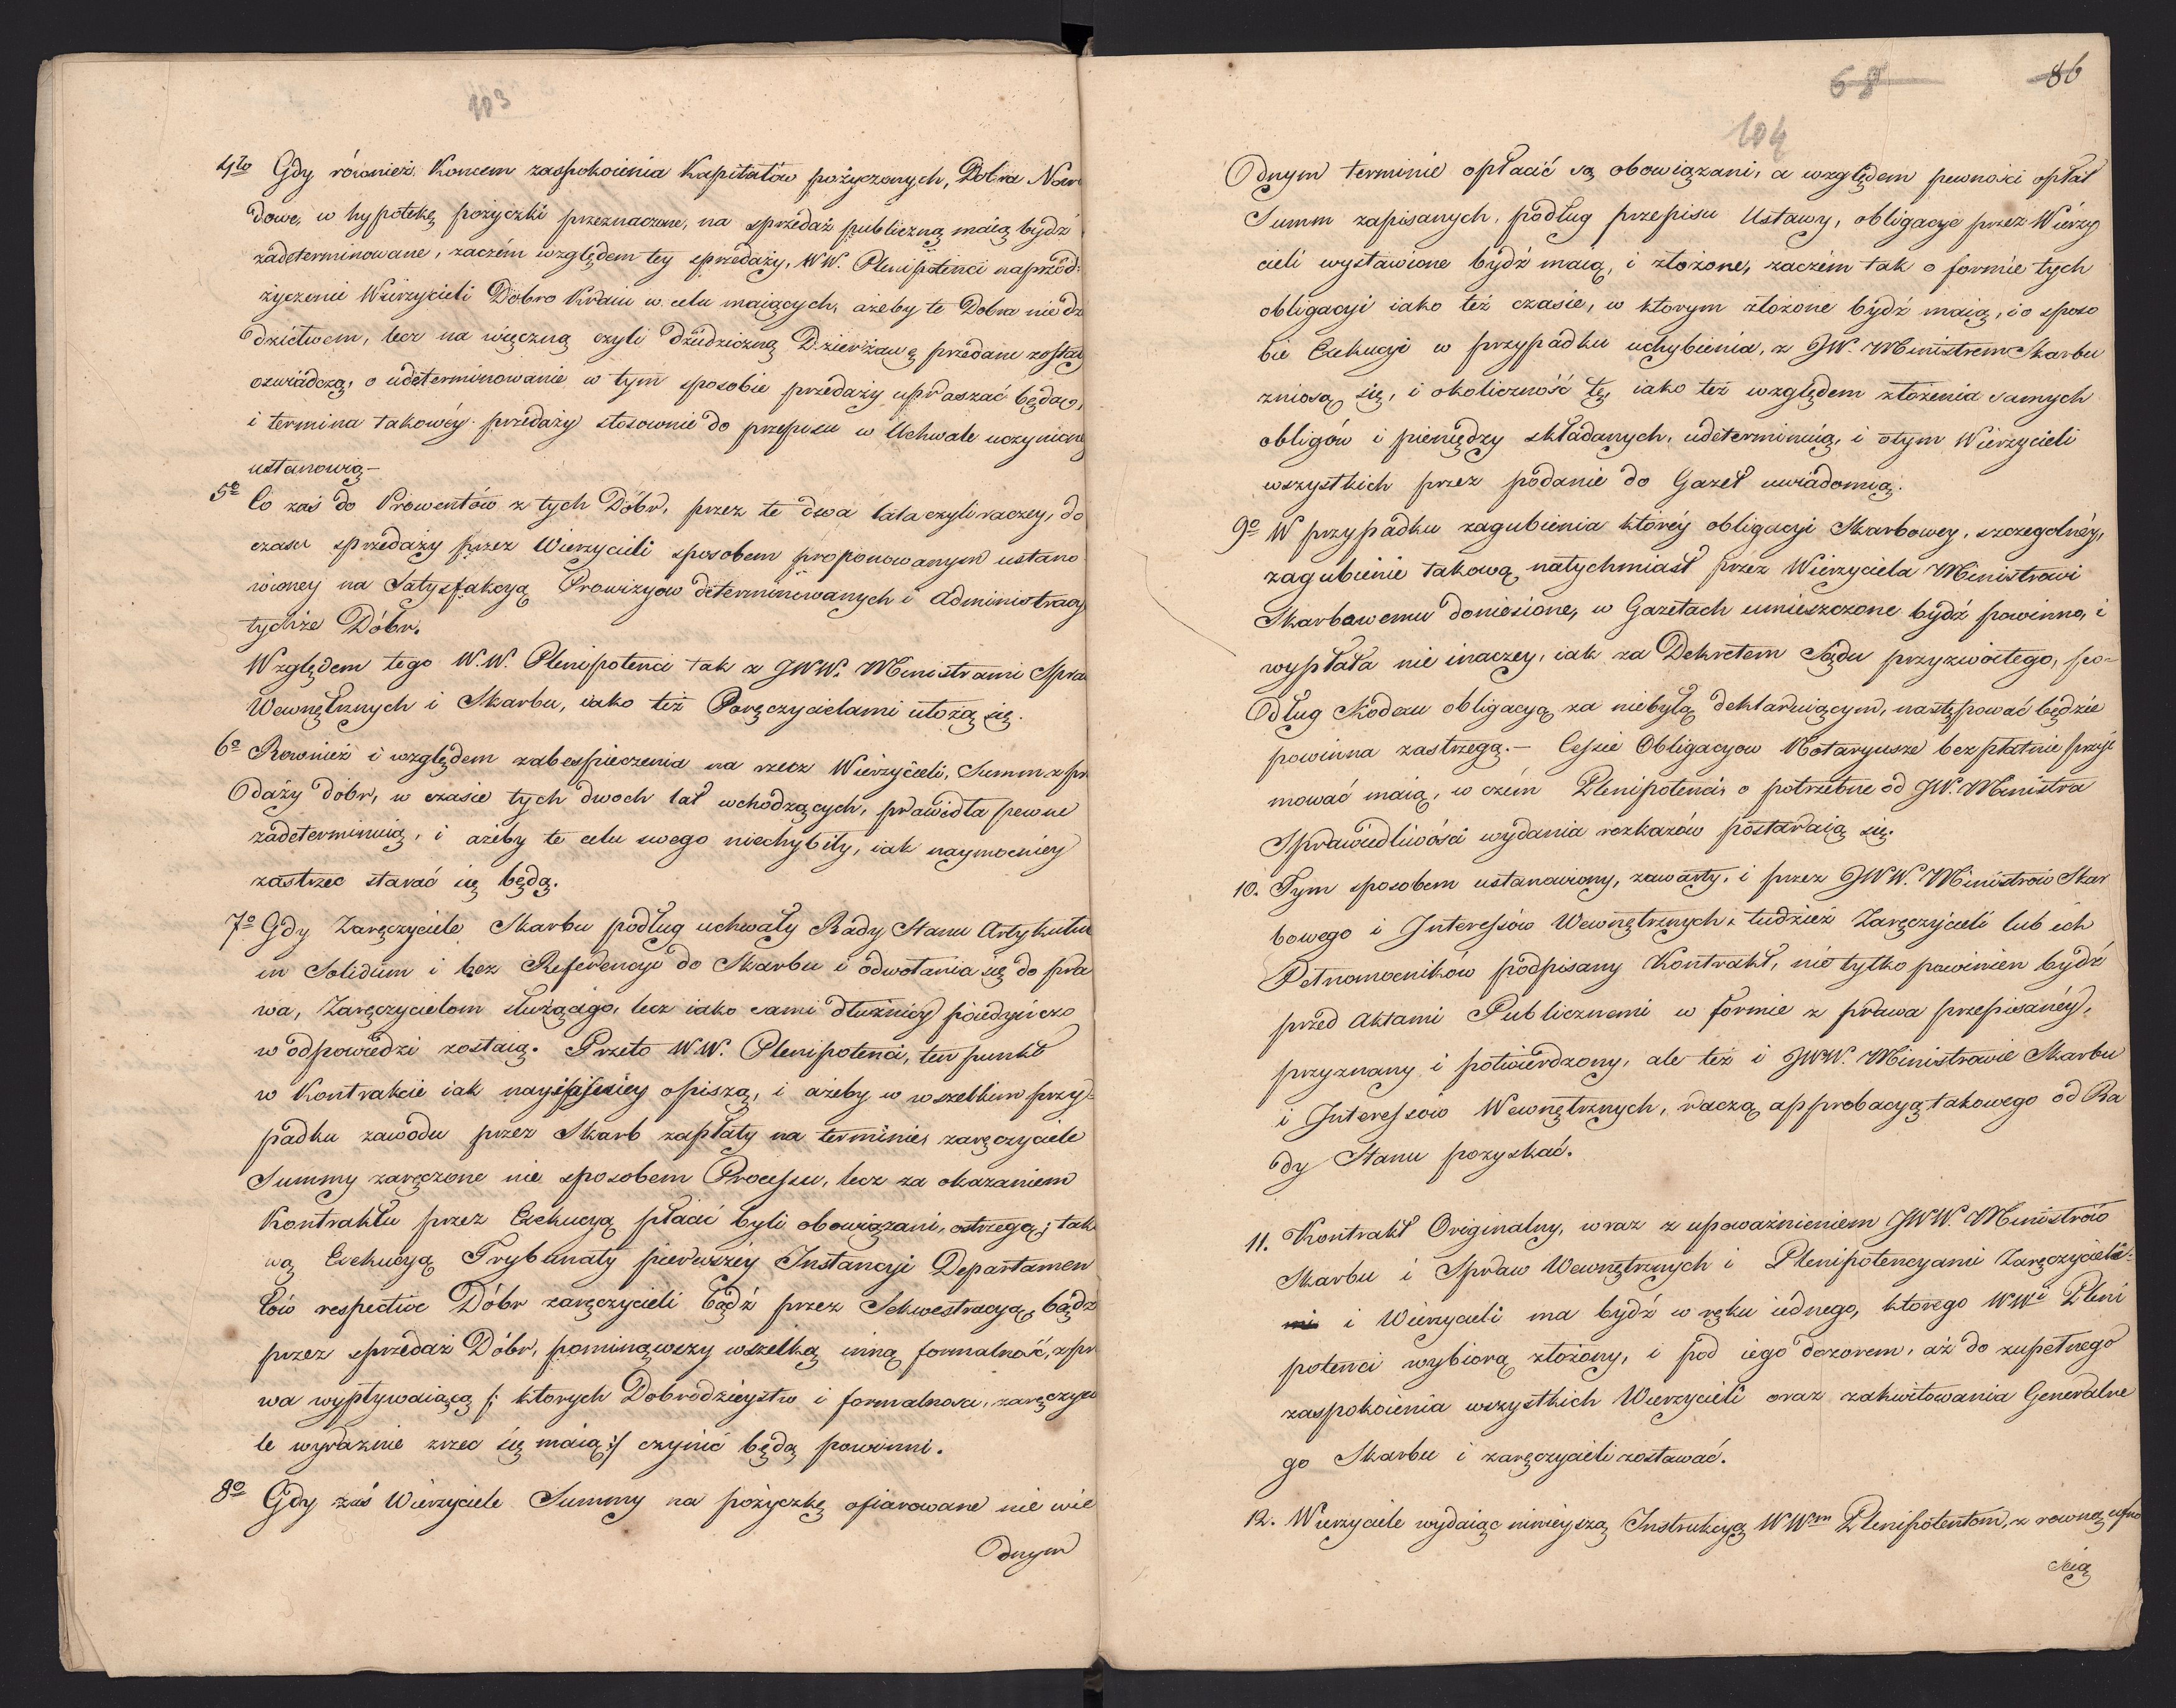 103
4to Gdy również Koncem zaspokoienia Kapitałów pożyczonych, Dobra Naro
dowe, w hypotekę pożyczki przeznaczone, na sprzedaż publiczną maią bydź
zadeterminowane, zaczém względem tey sprzedaży, WW. Plenipotenci naprzód
życzenie Wierzycieli Dobro Kraiu w celu maiących, ażeby te Dobra nie dz
dzictwem, lecz na wieczną czyli dziedziczną Dzierżawę przedane zostały
oświadczą, o udeterminowanie w tym sposobie przedaży upraszać będą,
i termina takowéy przedaży stosownie do przepisu w Uchwale uczynione
ustanowią —
5o Co zaś do Prowentów z tych Dóbr, przez te dwa lata czyli raczey, do
czasu sprzedaży przez Wierzycieli sposobem proponowanym ustano
wioney na Satysfakcyą Prowizyow determinowanych i Administracy
tychże Dóbr.
Względem tego W.W. Plenipotenci tak z JWW. Ministrami Spra
Wewnętrznych i Skarbu, iako też Poręczycielami ułożą się.
6o Rownież i względem zabespieczenia na rzecz Wierzycieli, Summ z pr
daży dóbr, w czasie tych dwoch lat wchodzących, prawidła pewne
zadeterminuią, i ażeby te celu swego niechybiły, iak naymocniey
zastrzec starać się będą.
7o Gdy Zaręczyciele Skarbu podług uchwały Rady Stanu Artykułu
in Solidum i bez Referencyi do Skarbu i odwołania się do pra
wa, Zaręczycielom służącego, lecz iako sami dłużnicy poiedyńczo
w odpowiedzi zostaią. Przeto W.W. Plenipotenci, ten punkt
w Kontrakcie iak opiszą, i ażeby w wszelkim przy
padku zawodu przez Skarb zapłaty na terminie, zaręczyciele
Summy zaręczone nie sposobem Processu, lecz za okazaniem
Kontraktu przez Exekucyą płacić byli obowiązani, ostrzegą; tako
wą Exekucyą Trybunały pierwszey Instancyi Departamen
tów respective Dóbr zaręczycieli bądź przez Sekwestracyą, bądź
przez sprzedaż Dóbr, pominąwszy wszelką inną formalność, z pr
wa wypływaiącą /: ktorych Dobrodzieystw i formalności, zaręczycie
le wyraźnie zrzec się maią :/ czynić będą powinni.
8o Gdy zaś Wierzyciele Summy na pożyczkę ofiarowane nie wie
dnym
68
86
104
dnym terminie opłacić są obowiązani, a względem pewności opłat
Summ zapisanych, podług przepisu Ustawy, obligacye przez Wierzy
cieli wystawione bydź maią, i złożone, zaczém tak o formie tych
obligacyi iako też czasie, w ktorym złożone bydź maią, i o sposo
bie Exekucyi w przypadku uchybienia, z JW. Ministrem Skarbu
zniosą się, i okoliczność tę, iako też względem złożenia samych
obligów i pieniędzy składanych, udeterminuią, i o tym Wierzycieli
wszystkich przez podanie do Gazet uwiadomią.
9o W przypadku zagubienia któréy obligacyi Skarbowey, szczególnéy,
zagubienie takową natychmiast przez Wierzyciela Ministrowi
Skarbowemu doniesione, w Gazetach umieszczone bydź powinno, i
wypłata nie inaczey, iak za Dekretem Sądu przyzwoitego, po-
dług Kodexu obligacyą za niebyłą deklaruiącym, następować będzie
powinna zastrzegą. — Cessie Obligacyow Notaryusze bezpłatnie przyi
mować maią, w czém Plenipotenci, o potrzebne od JW. Ministra
Sprawiedliwości wydania rozkazów postaraią się.
10. Tym sposobem ustanowiony, zawarty, i przez JWW. Ministrów Skar
bowego i Interessów Wewnętrznych, tudzież Zaręczycieli lub ich
Pełnomocników podpisany Kontrakt, nie tylko powinien bydź
przed Aktami Publicznemi w formie z prawa przepisanéy,
przyznany i potwierdzony, ale też i JWW. Ministrowie Skarbu
i Interessów Wewnętrznych, raczą approbacyą takowego od Ra
dy Stanu pozyskać.
11. Kontrakt Originalny, wraz z upoważnieniem JWW. Ministrów
Skarbu i Spraw Wewnętrznych i Plenipotencyami Zaręczycieli
i Wierzycieli ma bydź w ręku iednego, którego WWi Pleni
potenci wybiorą złożony, i pod iego dozorem, aż do zupełnego
zaspokoienia wszystkich Wierzycieli oraz zakwitowania Generalne
go Skarbu i zaręczycieli zostawać.
12. Wierzyciele wydaiąc ninieyszą Instrukcyą WWm Plenipotentom, z rowną ufno
ścią